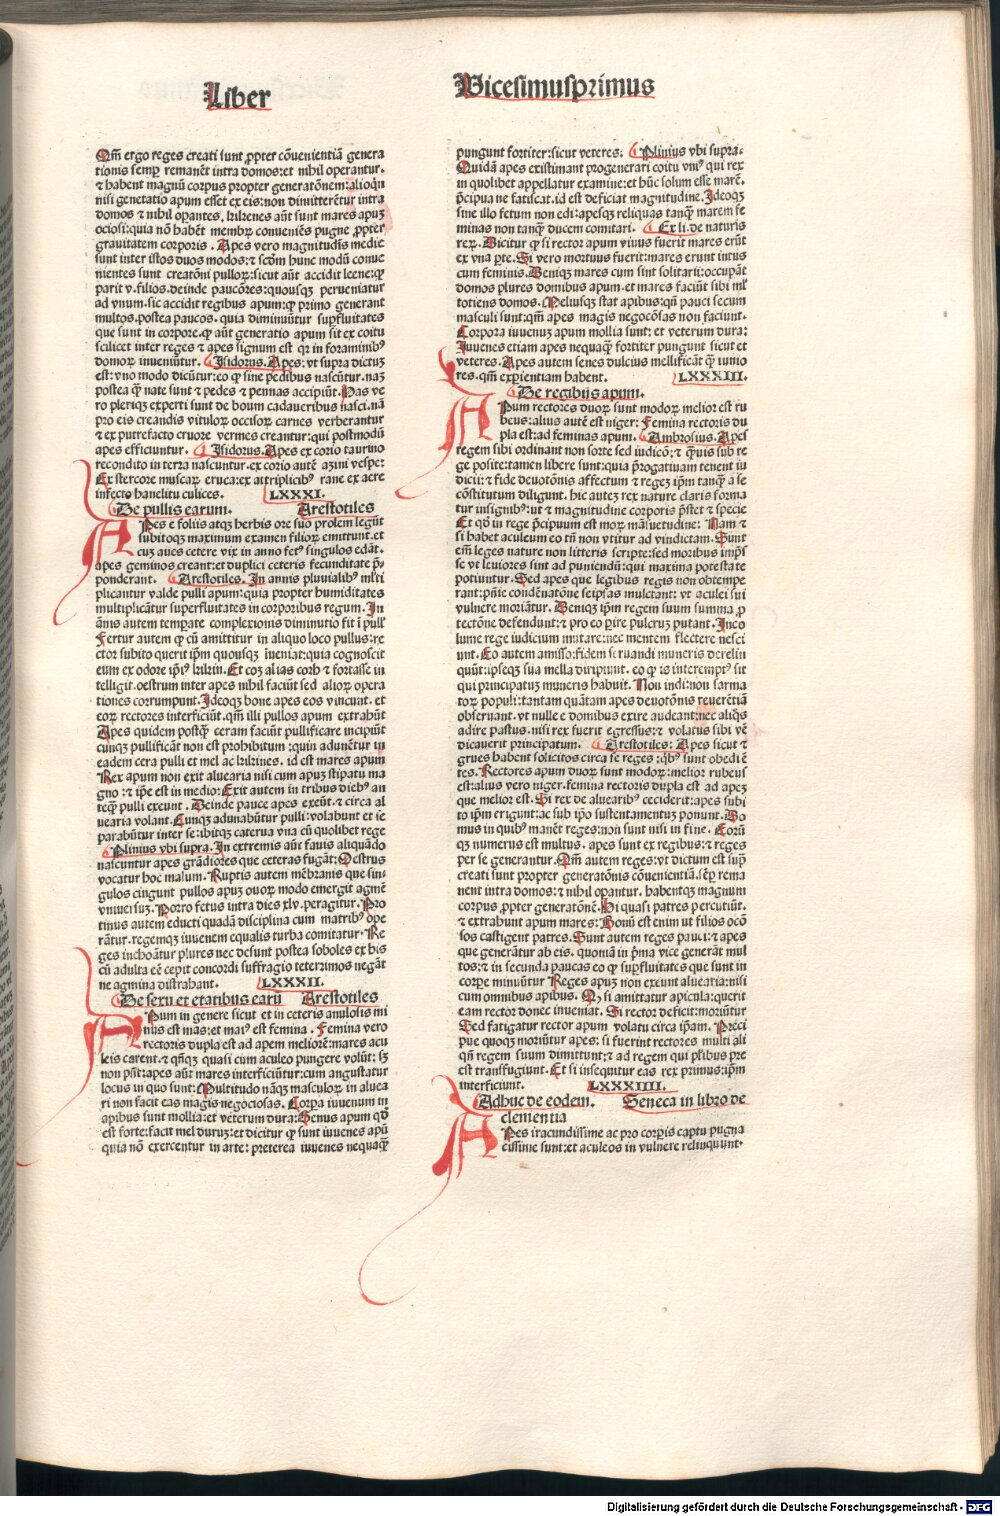 Liber
Vicesimusprimus
Qm̄ ergo reges creati sunt ꝓpter cōuenientiā genera
tionis semꝑ remanēt intra domos: et nihil operantur.
⁊ habent magnū corpus propter generatōnem: alioqͥn
nisi genetatio apum esset ex eis: non dimitterētur intra
domos ⁊ nihil oꝑantes. kirenes aūt sunt mares apuꝫ
ociosi: quia nō habēt membꝝ conueniēs pugne ꝓpter
grauitatem corporis . Apes vero magnitudīs medie
sunt inter istos duos modos: ⁊ scḋm hunc modū conue
nientes sunt creatōni pulloꝝ: sicut aūt accidit leene: ꝙ
parit v. filios. deinde paucōres: quousqꝫ perueniatur
ad vnum. sic accidit regibus apum: ꝙ primo generant
multos. postea paucos. quia diminuūtur suꝑfluitates
que sunt in corpore. ꝙ aūt generatio apum sit ex coitu
scilicet inter reges ⁊ apes signum est qꝛ in foraminibꝰ
domoꝝ inueniūtur. Isidorus. Apes: vt supra dictuꝫ
est: vno modo dicūtur: eo ꝙ sine pedibus nascūtur. naꝫ
postea qͣ nate sunt ⁊ pedes ⁊ pennas accipiūt. Has ve
ro pleriqꝫ experti sunt de boum cadaueribus nasci. nā
pro eis creandis vituloꝝ occisoꝝ carnes verberantur
⁊ ex putrefacto cruore vermes creantur: qui postmodū
apes efficiuntur. Isidorus. Apes ex corio taurino
recondito in terra nascuntur. ex corio autē azini vespe:
Ex stercore muscaꝝ eruca: ex aq̄ triplicibꝰ rane ex aere
infecto hanelitu culices. LXXXI.
De pullis earum. Arestotiles
APes e foliis atqꝫ herbis ore suo prolem legūt
subitoqꝫ maximum examen filioꝝ emittunt. et
cuꝫ aues cetere vix in anno fetꝰ singulos edāt.
apes geminos creant: et duplici ceteris fecunditate p̄
ponderant. Arestotiles. In annis pluuialibꝰ ml̄ti
plicantur valde pulli apum: quia propter humiditates
multiplicātur superfluitates in corporibus regum. In
ānis autem temꝑate complexionis diminutio fit ī pull̄
Fertur autem ꝙ cū amittitur in aliquo loco pullus: re
ctor subito querit ip̄m quousqꝫ īueniat: quia cognoscit
eum ex odore ip̄iꝰ kirin. Et coꝫ alias corb ⁊ fortasse in
telligit. oestrum inter apes nihil faciūt sed alioꝝ opera
tiones corrumpunt. Ideoqꝫ bone apes eos vincunt. et
eoꝝ rectores interficiūt. qm̄ illi pullos apum extrahūt
Apes quidem postqͣ̄ ceram faciūt pullificare incipiūt
cunqꝫ pullificāt non est prohibitum : quin adunētur in
eadem cera pulli et mel ac kirines. id est mares apum
Rex apum non exit aluearia nisi cum apuꝫ stipatu ma
gno : ⁊ ip̄e est in medio: Exit autem in tribus diebꝰ an
teqͣ̄ pulli exeunt . Deinde pauce apes exeūt. ⁊ circa al
uearia volant. Cunqꝫ adunabūtur pulli: volabunt et se
parabūtur inter se: ibitqꝫ caterua vna cū quolibet rege
Plinius vbi supra. In extremis aūt fauis aliquādo
nascuntur apes grādiores que ceteras fugāt: Oestrus
vocatur hoc malum. Ruptis autem mēbranis que sin-
gulos cingunt pullos apuꝫ ouoꝝ modo emergit agmē
vniuersuꝫ. Porro fetus intra dies xlv. peragitur. Pro
tinus autem educti quadā disciplina cum matribꝰ ope
rātur. regemqꝫ iuuenem equalis turba comitatur. Re
ges inchoātur plures nec desunt postea soboles ex his
cū adulta eē cepit concordi suffragio teterrimos negāt
ne agmina distrahant. LXXXII.
De sexu et etatibus earū Arestotiles
APum in genere sicut et in ceteris anulosis mi
nus est mas: et maiꝰ est femina . Femina vero
rectoris dupla est ad apem meliorē: mares acu
leis carent. ⁊ qn̄qꝫ quasi cum aculeo pungere volūt: sꝫ
non pn̄t: apes aūt mares interficiūtur: cum angustatur
locus in quo sunt: Multitudo nāqꝫ masculoꝝ in aluea
ri non facit eas magis negociosas. Corpa iuuenum in
apibus sunt mollia: et veterum dura: Genus apum qḋ
est forte: facit mel duruꝫ: et dicitur ꝙ sunt iuuenes apū
quia nō exercentur in arte: preterea iuuenes nequaqͣ̄
pungunt fortiter: sicut veteres. Plinius vbi supra.
Quidā apes existimant progenerari coitu vniꝰ qui rex
in quolibet appellatur examine: et hūc solum esse marē.
p̄cipua ne fatiscat. id est deficiat magnitudine. Ideoqꝫ
sine illo fetum non edi: apesqꝫ reliquas tanqͣ̄ marem fe
minas non tanqͣ̄ ducem comitari. Ex li. de naturis
reꝝ. Dicitur ꝙ si rector apum viuus fuerit mares erūt
ex vna ꝑte. Si vero mortuus fuerit: mares erunt intus
cum feminis. Deniqꝫ mares cum sint solitarii: occupāt
domos plures domibus apum. et mares faciūt sibi ml̄
totiens domos. Meliusqꝫ stat apibus: qn̄ pauci secum
masculi sunt: qm̄ apes magis negocōsas non faciunt.
Corpora iuuenuꝫ apum mollia sunt: et veterum dura:
Iuuenes etiam apes nequaqͣ̄ fortiter pungunt sicut et
veteres. Apes autem senes dulcius mellificāt qͣ̄ iunio
res. qm̄ exꝑientiam habent. LXXXIII.
De regibus apum.
APum rectores duoꝝ sunt modoꝝ melior est ru
beus: alius autē est niger: Femina rectoris du
pla est: ad feminas apum. Ambrosius. Apes
regem sibi ordinant non sorte sed iudicō: ⁊ qͣ̄uis sub re
ge posite: tamen libere sunt: quia p̄rogatiuam tenent iu
dicii: ⁊ fide deuotōnis affectum ⁊ regeꝫ ip̄m tanqͣ̄ a se
cōstitutum diligunt. hic auteꝫ rex nature claris forma
tur insignibꝰ: vt ⁊ magnitudine corporis p̄stet ⁊ specie
Et qḋ in rege p̄cipuum est moꝝ mā̄suetudine: Nam ⁊
si habet aculeum eo tn̄ non vtitur ad vindictam. Sunt
em̄ leges nature non litteris scripte: sed moribus imp̄s
se vt leuiores sint ad puniendū: qui maxima potestate
potiuntur. Sed apes que legibus regis non obtempe
rant: pn̄ie condēnatōne seipsas mulctant: vt aculei sui
vulnere moriātur. Deniqꝫ ip̄m regem suum summa ꝓ
tectōne defendunt: ⁊ pro eo ꝑire pulcruꝫ putant. Inco
lume rege iudicium mutare: nec mentem flectere nesci
unt. Eo autem amisso: fidem seruandi muneris derelin
quūt: ipseqꝫ sua mella diripiunt. eo ꝙ is interemptꝰ sit
qui principatuꝫ muneris habuit. Non indi: non sarma
toꝝ populi: tantam quātam apes deuotōnis reuerētiā
obseruant. vt nulle e domibus exire audeant: nec aliq̄s
adire pastus. nisi rex fuerit egressus: ⁊ volatus sibi vē
dicauerit principatum. Arestotiles: Apes sicut ⁊
grues habent solicitos circa se reges: qͥbꝰ sunt obediē
tes. Rectores apum duoꝝ sunt modoꝝ: melior rubeus
est: alius vero niger. femina rectoris dupla est ad apeꝫ
que melior est. Si rex de aluearibꝰ ceciderit: apes subi
to ip̄m erigunt: ac sub ip̄o sustentamentuꝫ ponunt. Do
mus in quibꝰ manēt reges: non sunt nisi in fine. Eorū
qꝫ numerus est multus. apes sunt ex regibus: ⁊ reges
per se generantur. Qm̄ autem reges: vt dictum est suꝑ
creati sunt propter generatōnis cōuenientiā. sēꝑ rema
nent intra domos: ⁊ nihil opantur. habentqꝫ magnum
corpus ꝓpter generatōnē. Hi quasi patres percutiūt.
⁊ extrahunt apum mares: Bonū est enim ut filios ocō
sos castigent patres. Sunt autem reges pauci: ⁊ apes
que generātur ab eis. quoniā in p̄ma vice generāt mul
tos: ⁊ in secunda paucas eo ꝙ supfluitates que sunt in
corꝑe minuūtur Reges apuꝫ non exeunt aluearia: nisi
cum omnibus apibus. Qꝫ si amittatur apicula: querit
eam rector donec inueniat. Si rector deficit: moriūtur
Sed fatigatur rector apum volatu circa ip̄am. Preci
pue quoqꝫ moriūtur apes: si fuerint rectores multi ali
qn̄ regem suum dimittunt: ⁊ ad regem qui pl̄ibus pre
est transfugiunt. Et si insequitur eas rex primus: ip̄m
interficiunt. LXXXIIII.
Adhuc de eodem. Seneca in libro de
clementia
APes iracundissime ac pro corꝑis captu pugna
cissime sunt: et aculeos in vulnere relinquunt.
Digitalisierung gefördert durch die Deutsche Forschungsgemeinschaft - DFG